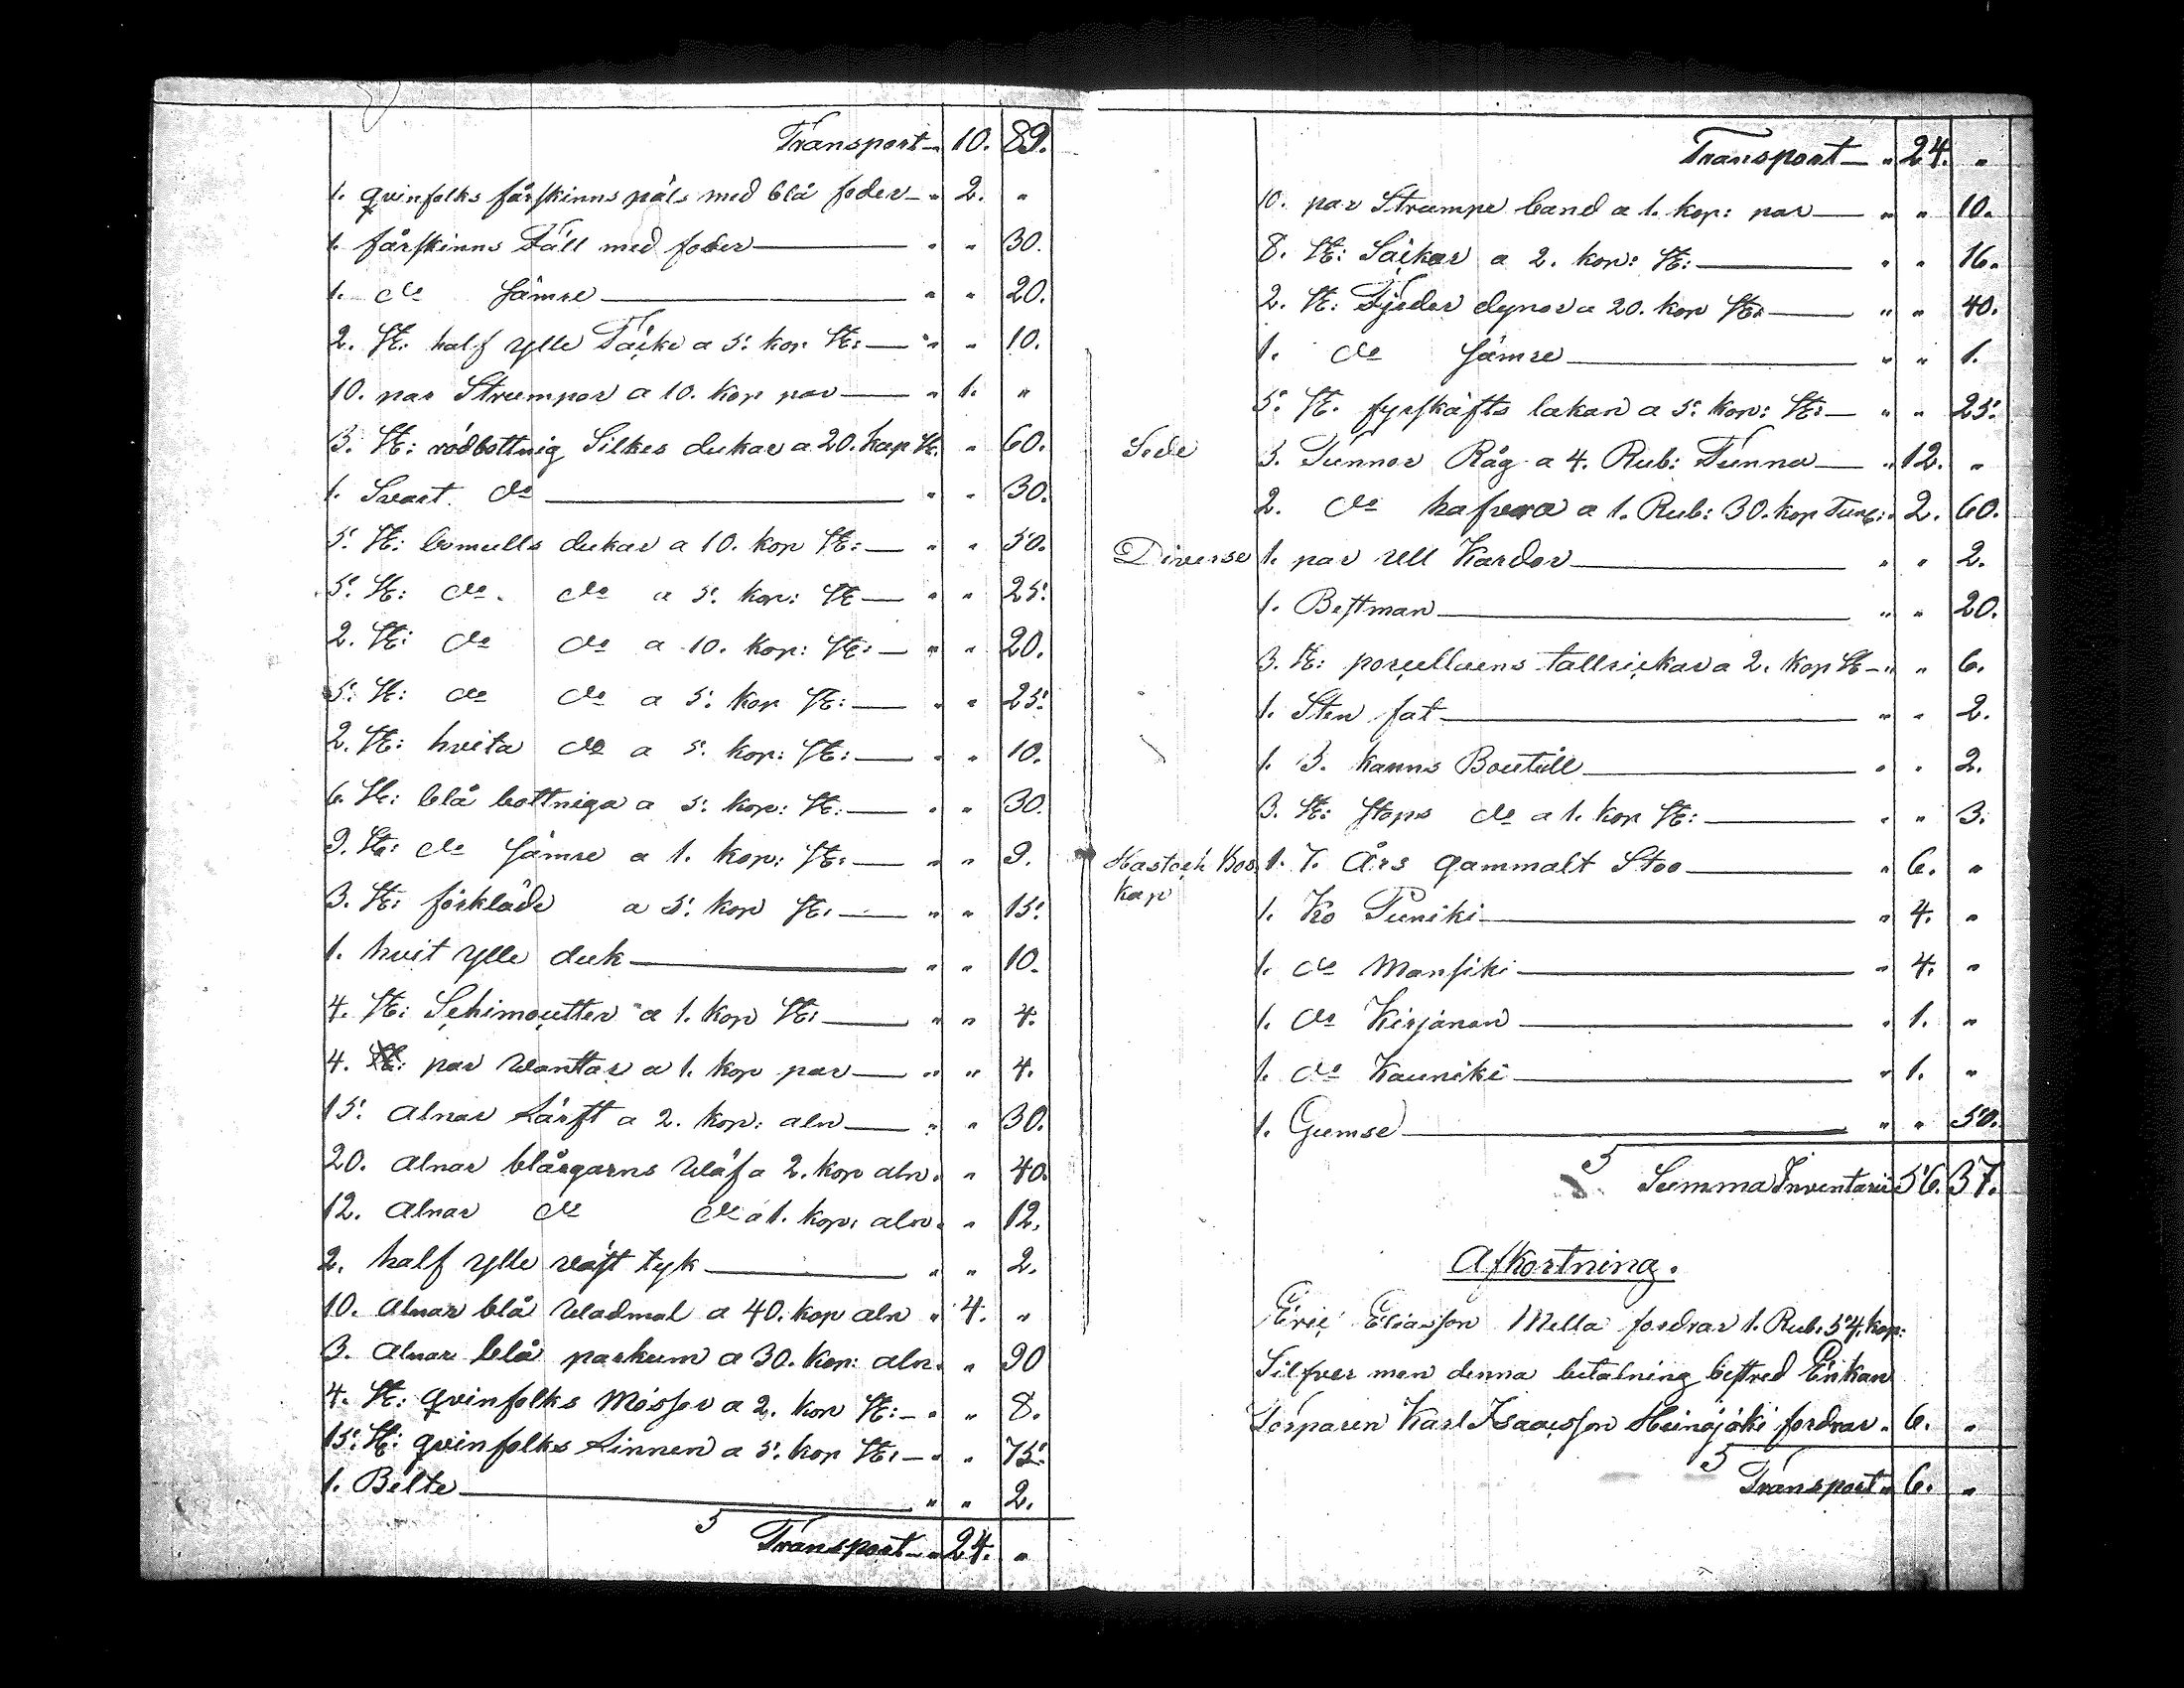 Transport „ 10. 89.
1. qvinfolks fårskinns päls med blå foder „ 2. „
1. fårskinns Fäll med foder „ „ 30.
1. do sämre „ „ 20.
2. St: half ylle Täcke a 5. kop St: „ „ 10.
10. par Strumpor a 10. kop par „ 1. „
3. St: rödbottnig Silkes dukar a 20. kop St. „ 60.
1. Svart do „ „ 30.
5. St: bomulls dukar a 10. kop St: „ „ 50.
5. St: do. do a 5. kop: St „ „ 25.
2. St: do do a 10. kop: St: „ „ 20.
5. St: do do a 5. kop St: „ „ 25.
2. St: hvita do a 5. kop: St: „ „ 10.
6. St: blå bottniga a 5. kop: St: „ „ 30.
9. St: do sämre a 1. kop: St: „ „ 9.
3. St: förkläde a 5. kop St: „ „ 15.
1. hvit ylle duk „ „ 10.
4. St: a 1. kop St: „ „ 4.
4. par Wanttar a 1. kop par „ „ 4.
15. alnar Lärft a 2. kop: aln „ „ 30.
20. alnar blårgarns Wäf a 2. kop aln „ „ 40.
12. alnar do do a 1. kop: aln „ „ 12.
2. half ylle väft tyk „ „ 2.
10. alnar blå Wadmal a 40. kop aln „ 4. „
3. alnar blå parkum a 30. kop: aln „ „ 90
4. St: qvinfolks Mössor a 2. kop St: „ „ 8.
15. St: qvinfolks Linnen a 5. kop St: „ „ 75.
1. Bälte „ „ 2.
S Transport „ 24. „
Transport „ 24. „
10. par Strumpe band a 1. kop: par „ „ 10.
8. St: Säckar a 2. kop: St: „ „ 16.
2. St: Fjeder dynor a 20. kop St: „ „ 40.
1. do sämre „ „ 1.
5. St. fyrskäfts lakan a 5. kop: St: „ „ 25.
Sede 3. Tunnor Råg a 4. Rub: Tunna „ 12. „
2. do hafvra a 1. Rub: 30. kop Tun: „ 2. 60.
Diverse 1. par Ull Kardor „ „ 2.
1. Bessman „ „ 20.
3. St: porcellaens tallrickar a 2. kop St „ „ 6.
1. Sten fat „ „ 2.
1. 3. kanns Boutell „ „ 2.
3. St: stops do a 1. kop St: „ „ 3.
Hast och Bos 1. 7. Års gammalt Stoo „ 6. „
kap
1. Ko Puniki „ 4. „
1. do Mansiki „ 4. „
1. do Kirjanan „ 1. „
1. do Kauniki „ 1. „
1. Gumse „ „ 50.
S
Summa Inventarie 56. 37.
Afkortning.
Eric Eliasson Mella fordrar 1. Rub: 54. kop:
Silfver men denna betalning bestred Enkan
Torparen Karl Isacsson Heinojoki fordrar „ 6. „
S
Transport „ 6. „